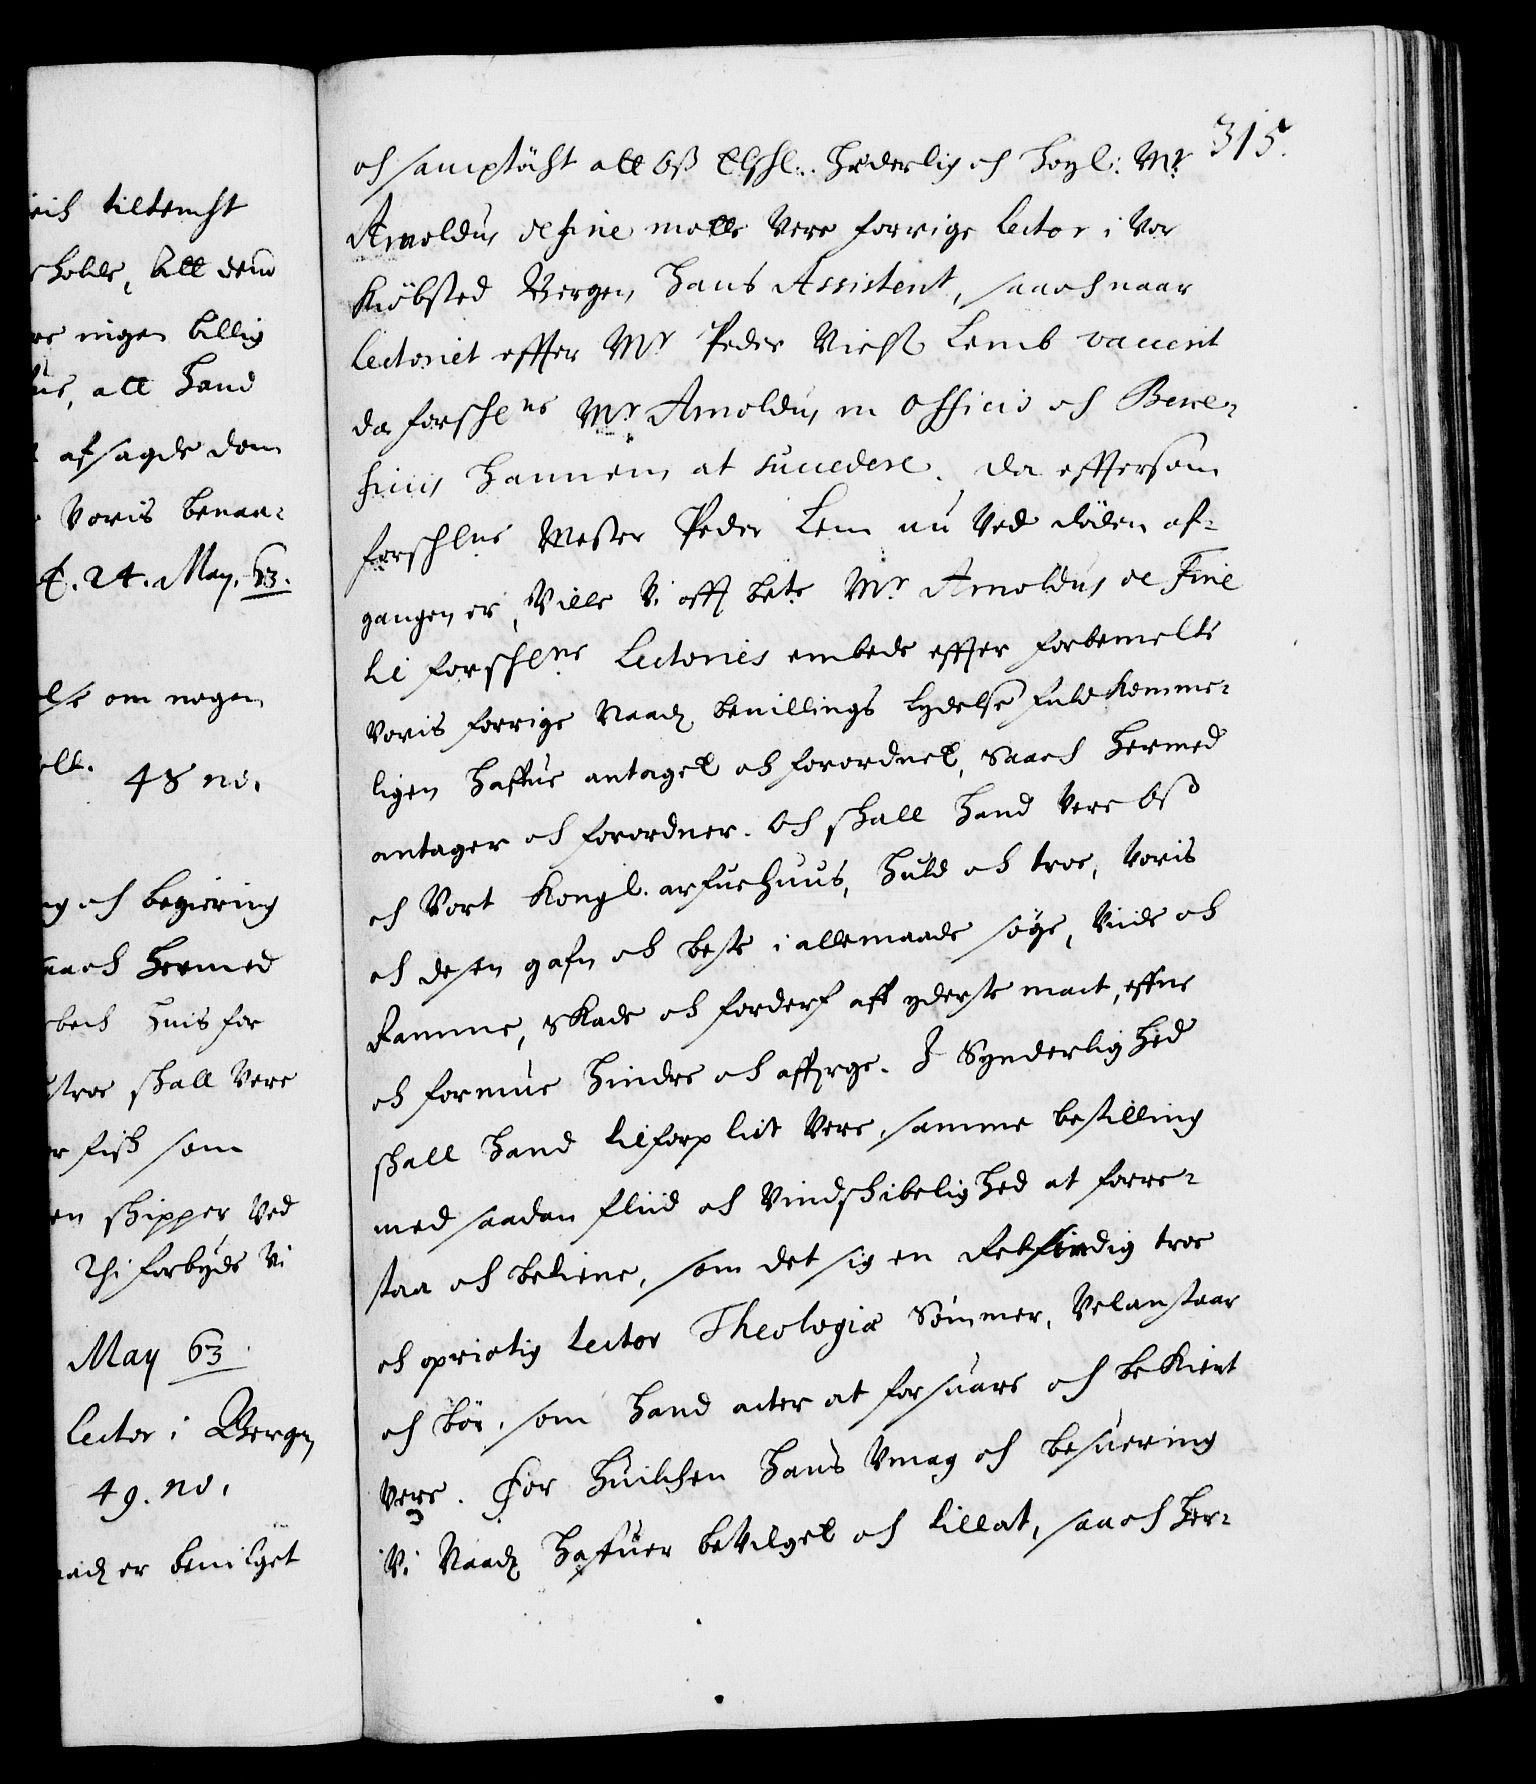 eich tiltencht
holde, Att dend
re ingen billig
ue, att Hand
afsagde dom
Voris benaa-
E. 24. May. 63.
else om nogen
elb. 48 no.
ng och begiering
saa och hermed
bech huis for
troe shall Vere
er fish som
en shipper Ved
Thi forbyde Vi
May 63.
Lector i Bergen
49. no.
naadigst er beuilget
315.
och samptöcht att oss Elshl: Hæderlig och Høgl: Mr
Arnoldus de fine motte Vere forrige Lector i Vor
Kiöbsted Bergen hans Assistent, saa och naar
Lectoriet effter Mr Peder Nielss Lemb vacerit
da forschne Mr Arnoldus in officio och Bene-
ficiis hannem at succedere. da effter som
forschne Mester Peder Lem nu Ved döden af-
gangen er, Ville Vi oft bete Mr Arnoldus de Fine
til forschne Lectories embede effter forbemelte
Voris forrige Naadigst beuillings Lydelse fuldkomme-
ligen haffue antaget och forordnet, Saa och hermed
antager och forordner. Och shall hand Vere oss
och Vort Kongl. arfuehuus, huld och troe, Voris
och desen gafn och beste i alle maade søge, Viide och
Ramme, Skade och forderf aff yderste mact, effne
och formue hindre och affuerge. I Synderlighed
shall hand tilforplict Vere, samme bestilling
med saadan fliid och Vindshibelighed at forre-
staa och betiene, som det sig en Retsindig troe
och oprictig Lector Theologiæ Sömmer, Velanstaar
och bör, som hand acter at forsuare och bekient
Vere. For huilchen hans Vmag och besuering
Vi Naadigst hafuer beVilget och tillat, saa och her-